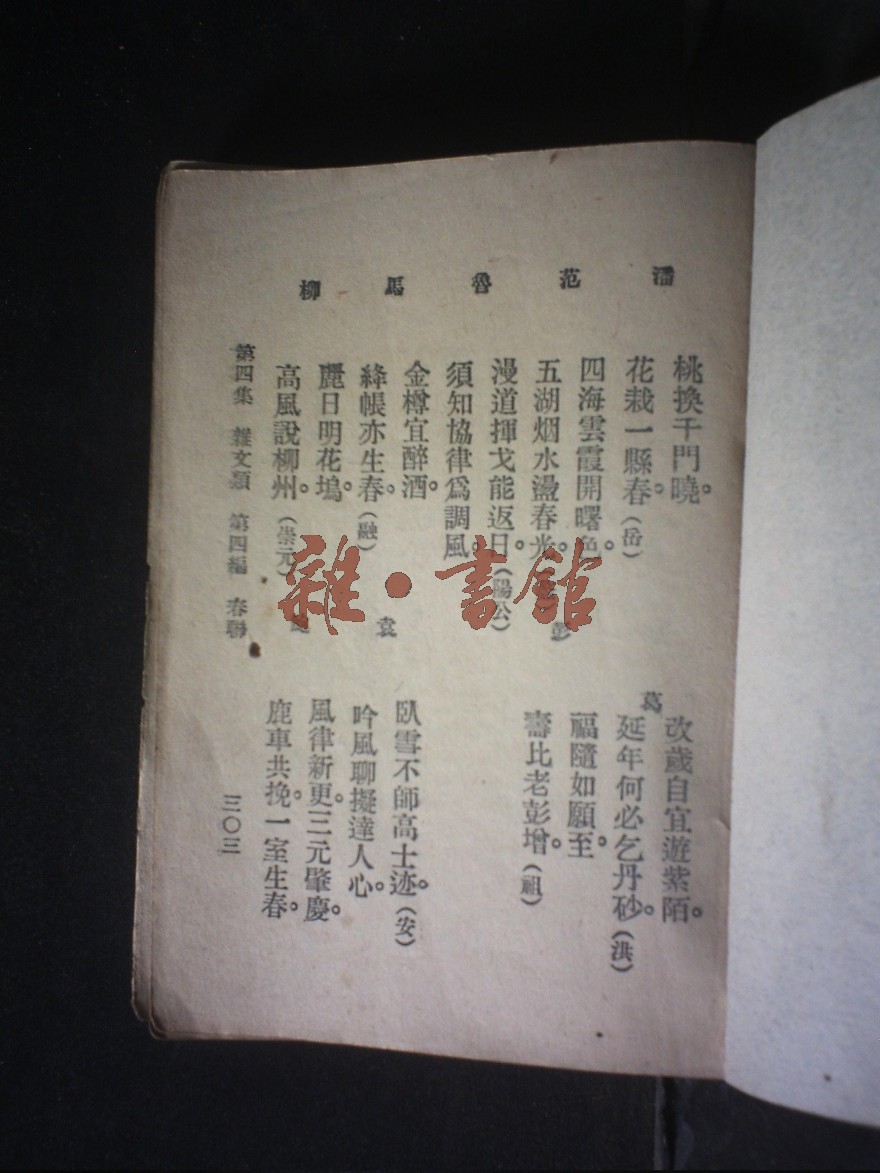 潘
范
魯
馬
柳
桃換千門曉。
花栽一縣春。(岳)
四海雲霞開曙色。
五湖烟水盪春光。
漫道揮戈能返日。(陽公)
須知協律爲調風。
金樽宜醉酒。
絳帳亦生春。(融)
麗日明花塢。
高風說柳州。(崇元)
葛
改歲自宜遊紫陌。
延年何必乞丹砂。(洪)
彭
福隨如願至。
壽比老彭增。(祖)
袁
臥雪不師高士迹。(安)
吟風聊擬達人心。
風律新更。三元肇慶。
鹿車共挽。一室生春。
第四集 雜文類 第四編 春聯
三〇三
雜·書館